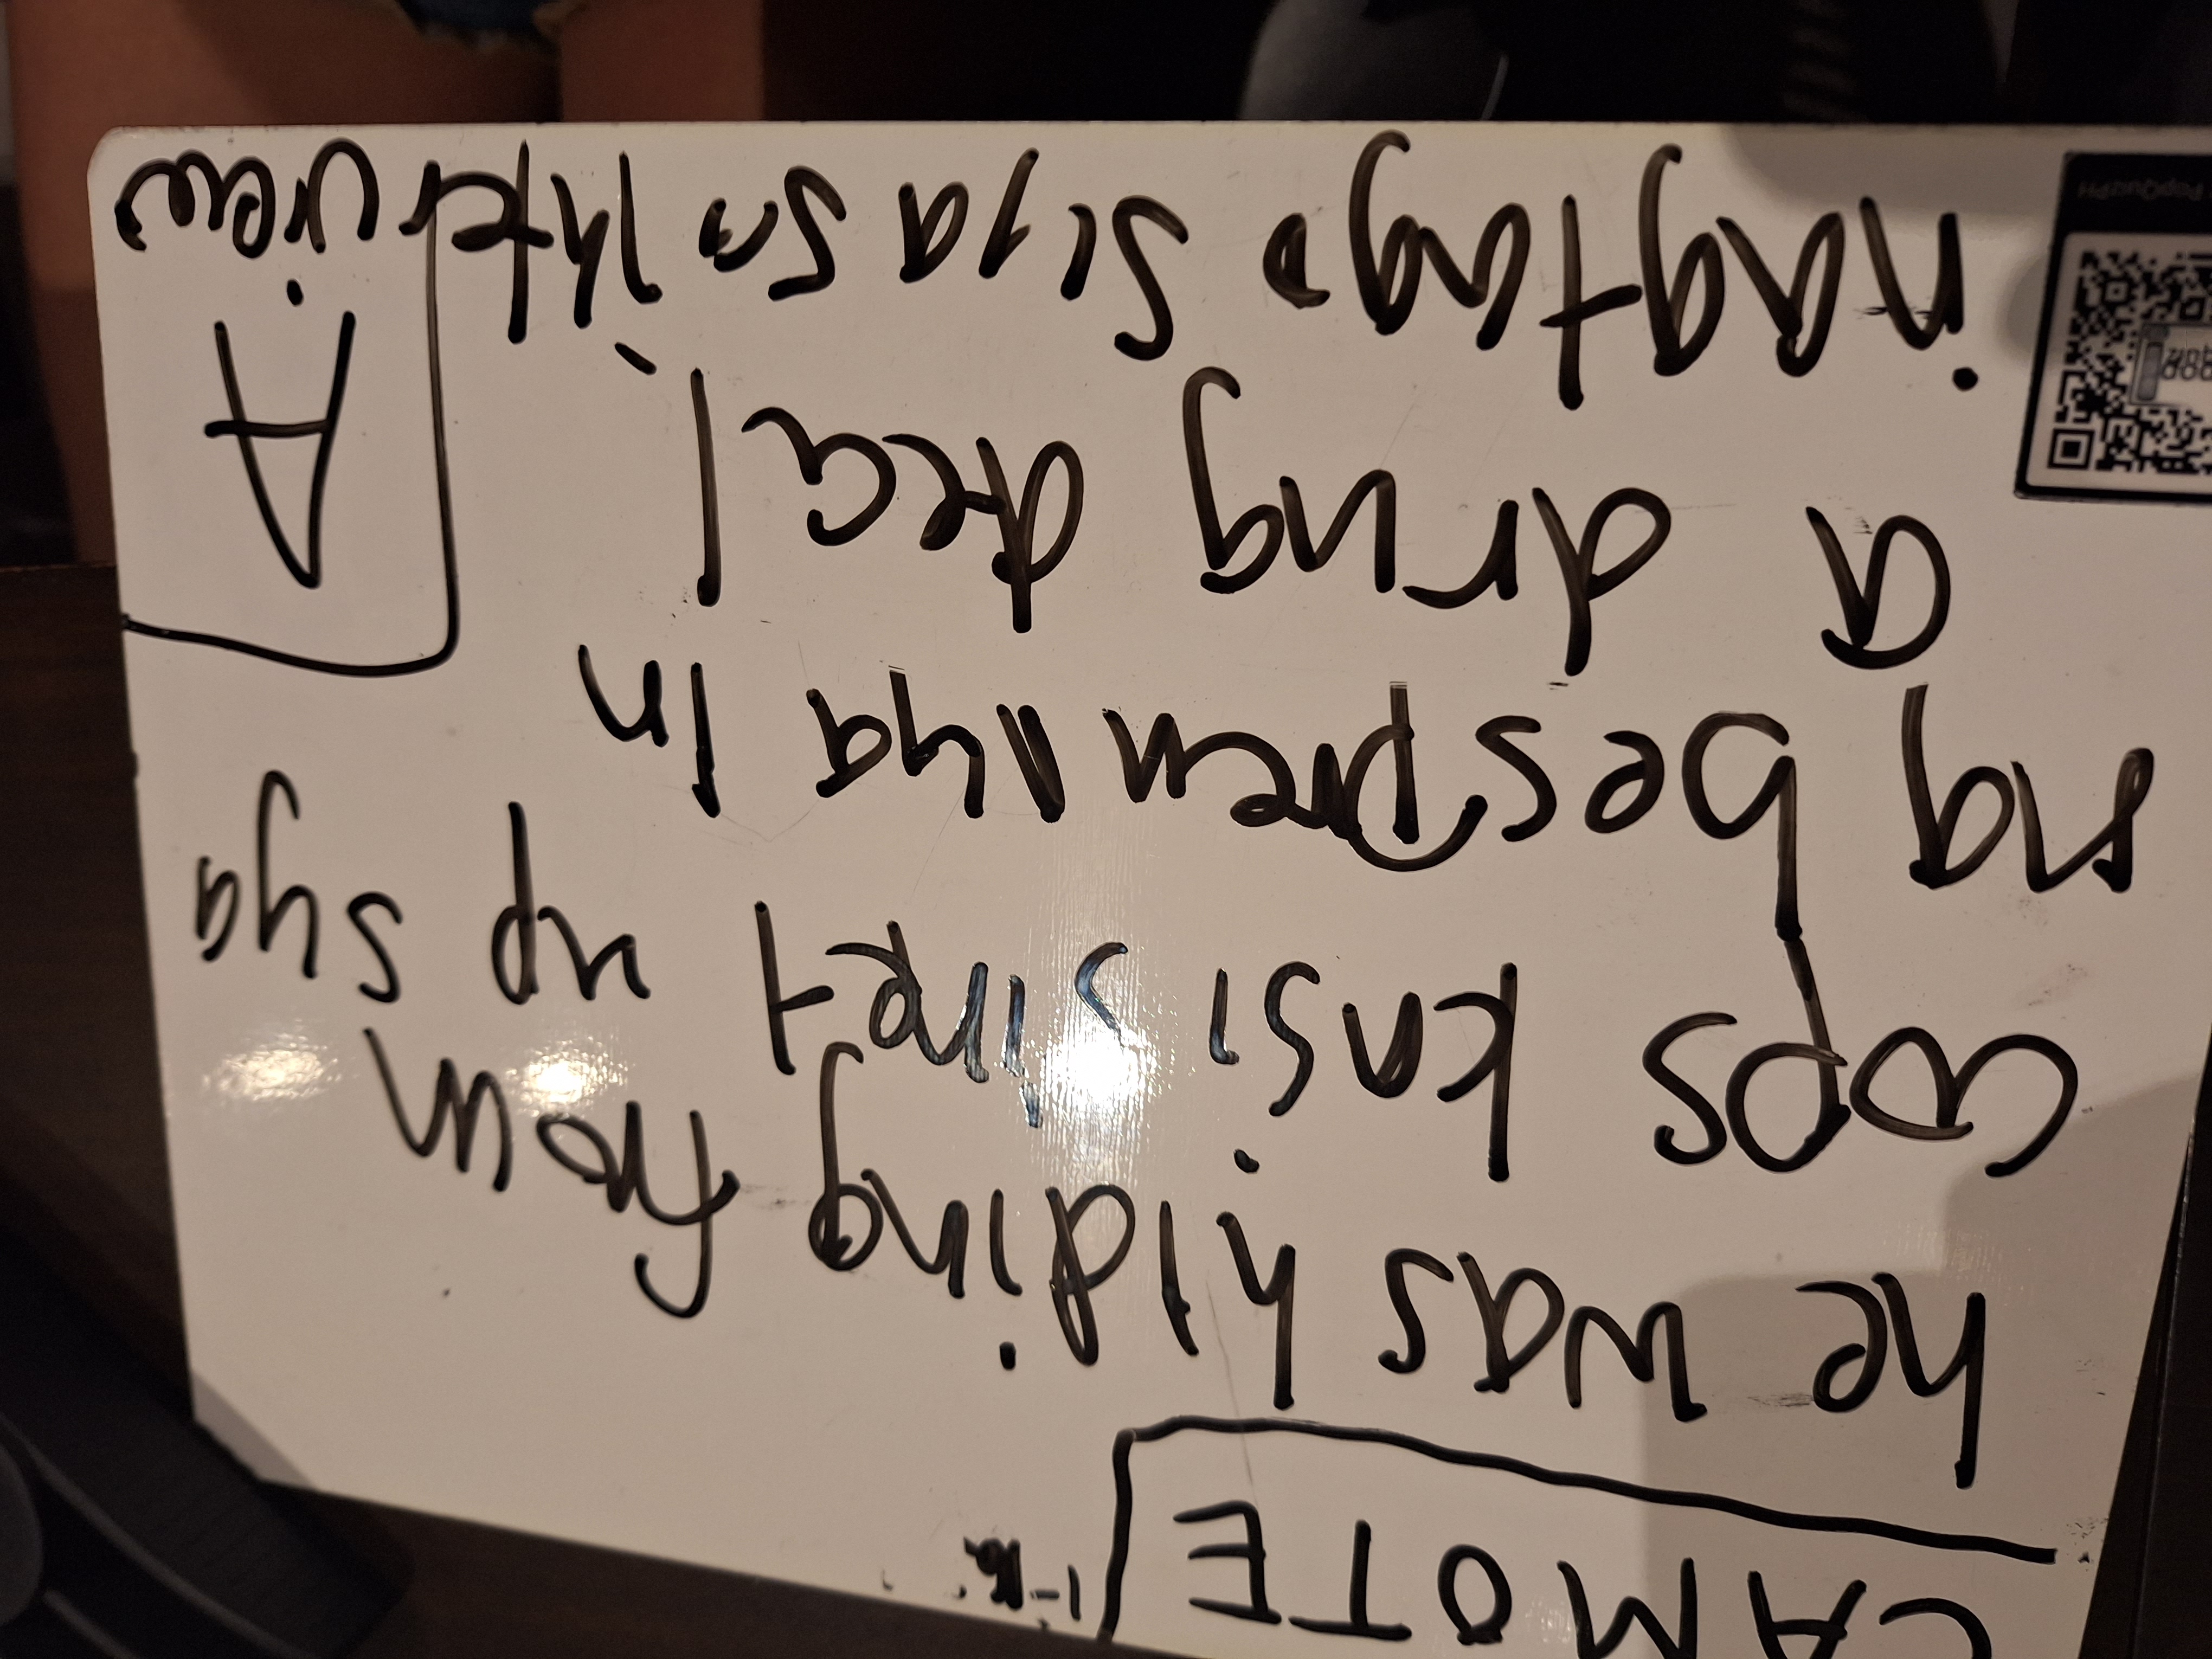 CAMOTE
he was hiding from
cops knsi sinet up sya
ng bespren nya in
a drug deal
A
nagtago siya sa interview
PopQuizPH